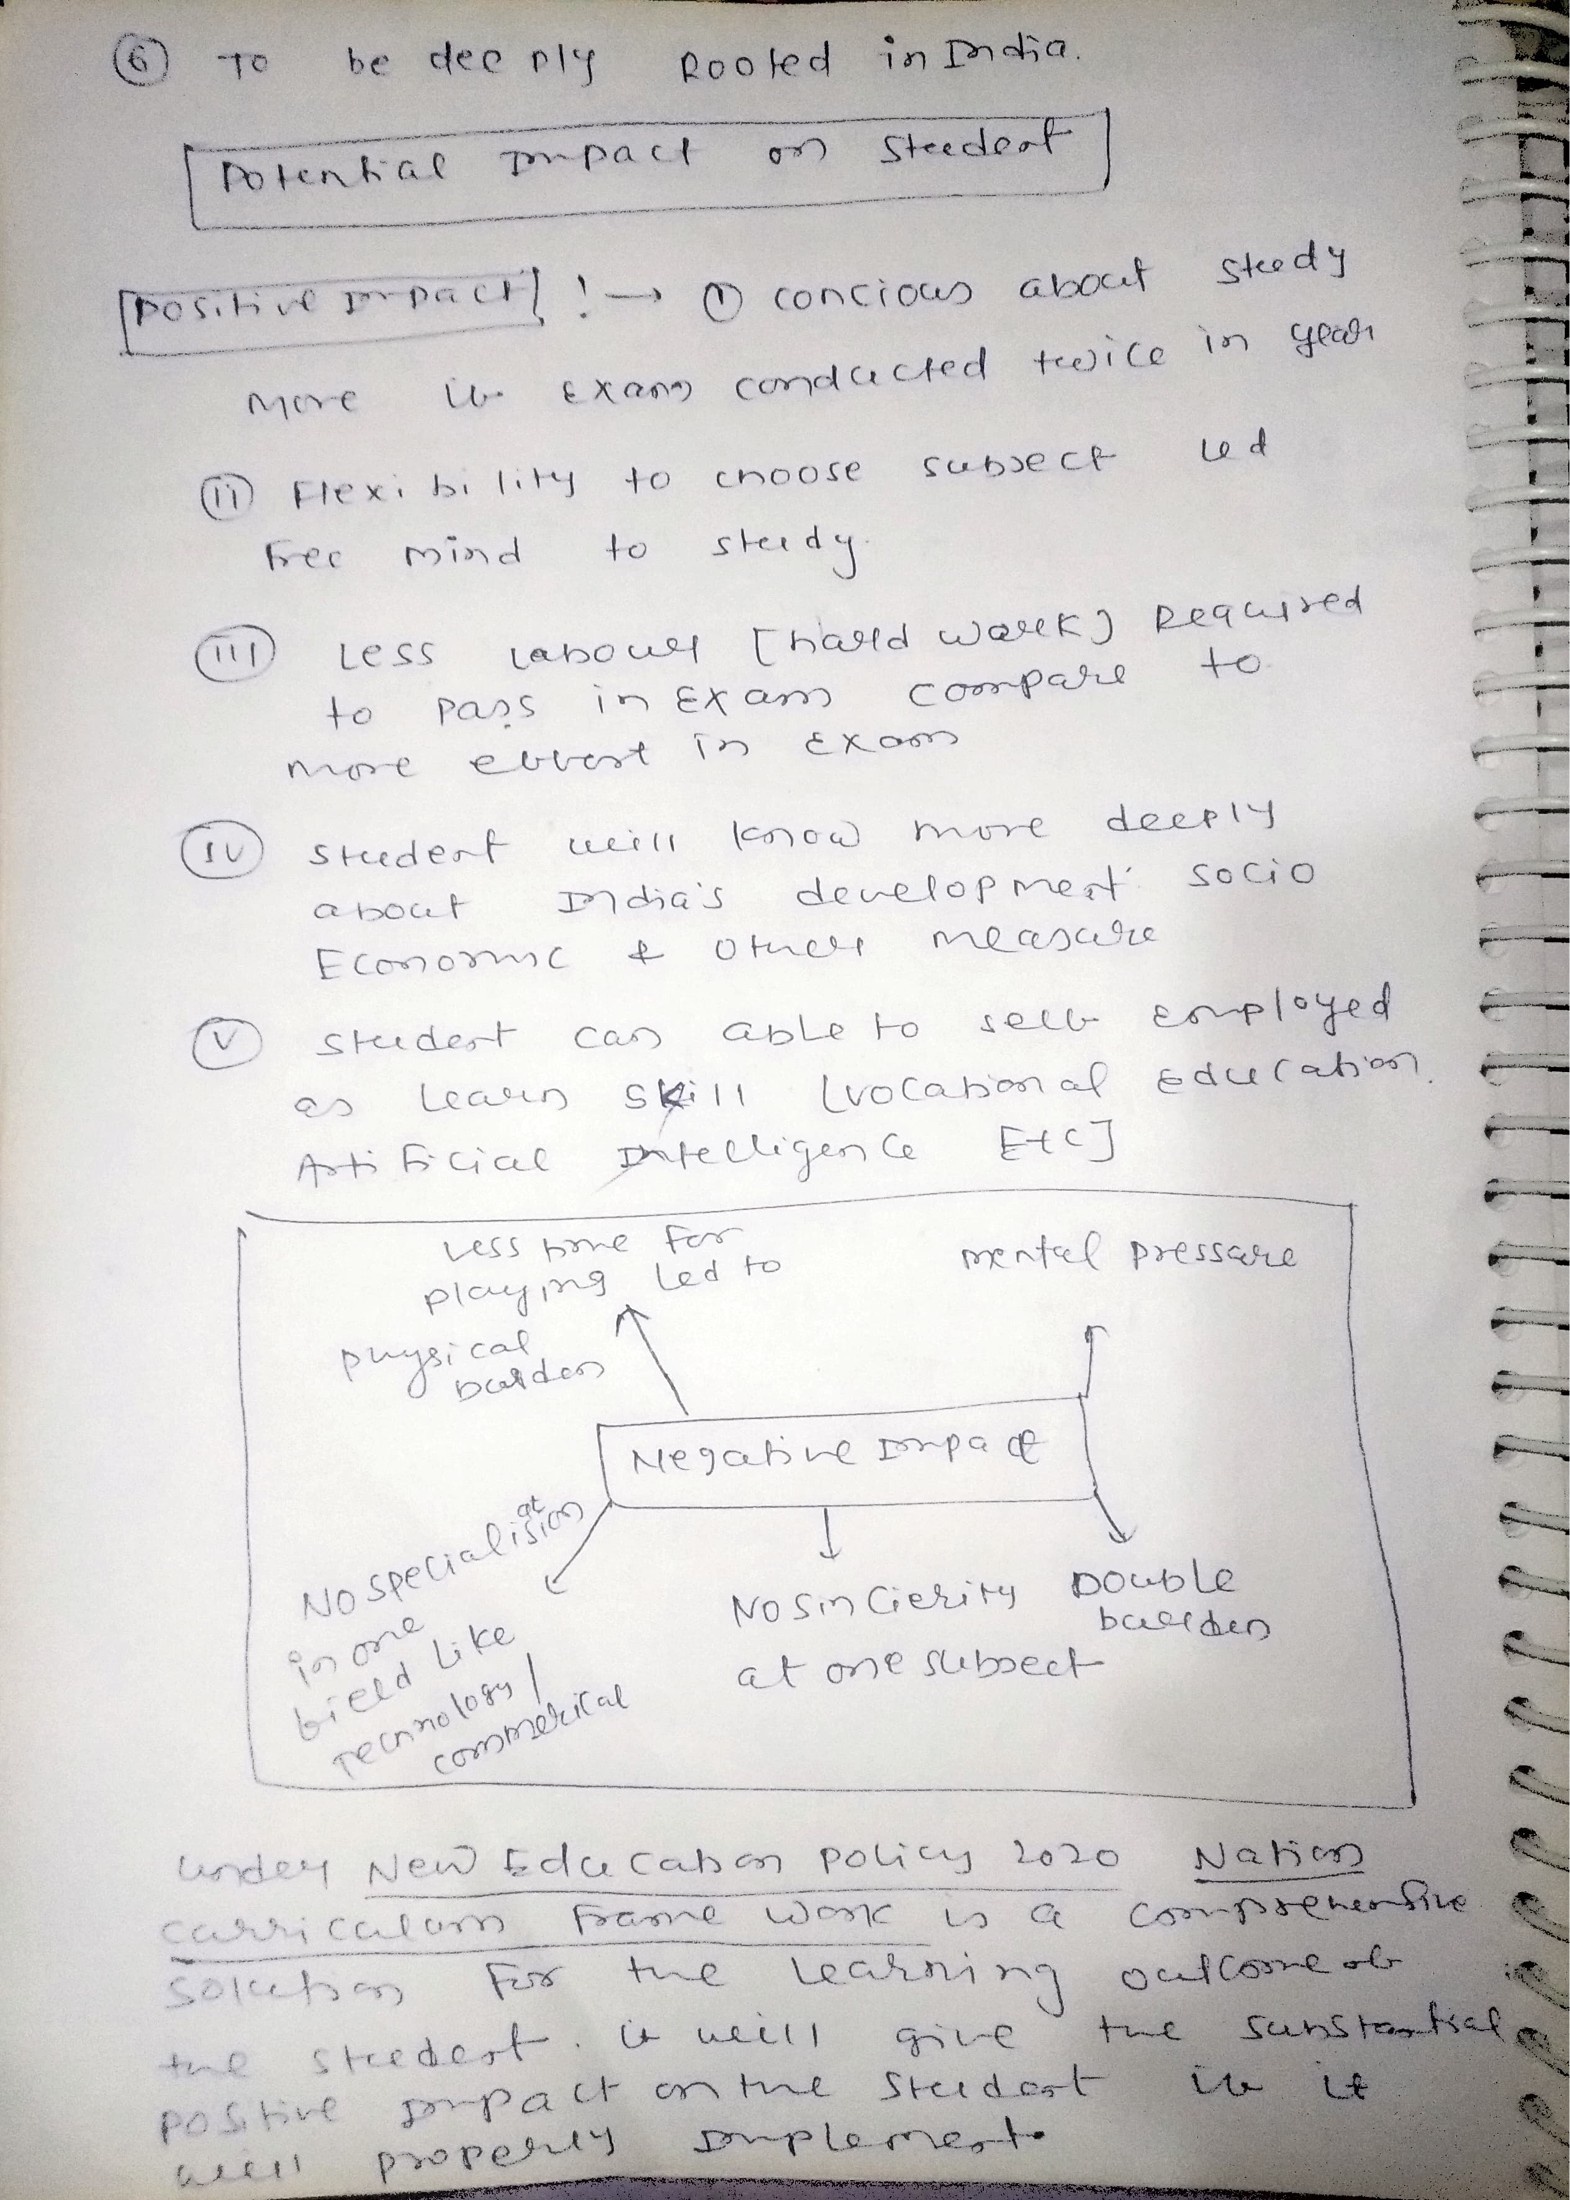 6 To be deeply Rooted in India.
Potential Impact on Student
Positive Impact ! → i concious about study
more if exam conducted twice in year
ii Flexibility to choose subject led
free mind to study.
iii Less labour [hard work] Required
to pass in Exam compare to
more effort in Exam
iv student will know more deeply
about India's development socio
Economic & other measure
v student can able to self employed
as learn skill (vocational education.
Artificial Intelligence Etc]
Less time for
playing led to
physical
burden
mental pressure
Negative Impact
No specialisation
in one
field like
Technology/
commerical
No sincierity
at one subject
Double
burden
under New Education policy 2020 Nation
curriculum Frame work is a comprehensive
solution for the learning outcome of
the student. it will give the substantial
positive impact on the student if it
will properly implement.